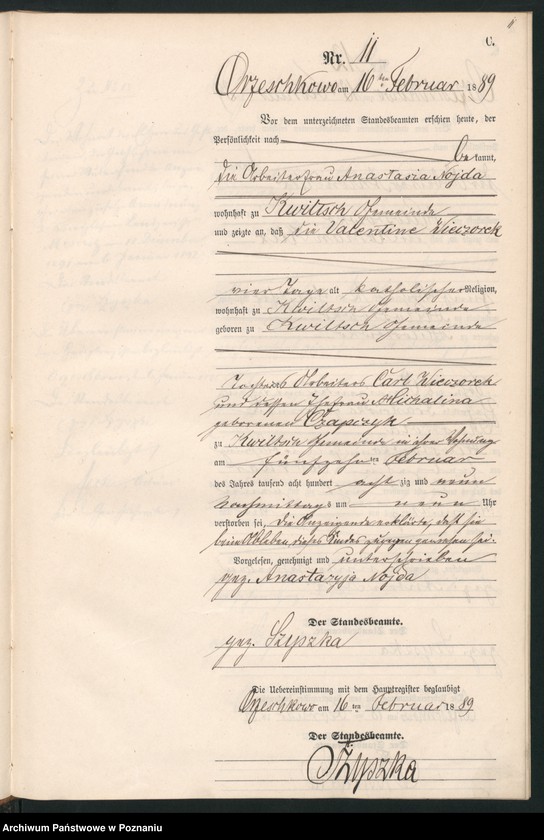 C.
Nr. 11
Orzeschkowo am 16ten Februar 1889
Vor dem unterzeichneten Standesbeamten erschien heute, der
Persönlichkeit nach
be kannt,
die Arbeiterfrau Anastasia Nojda
wohnhaft zu Kwiltsch Gemeinde
und zeigte an, daß die Valentine Wieczorek
vier Tage alt katholischer Religion,
wohnhaft zu Kwiltsch Gemeinde
geboren zu Kwiltsch Gemeinde
Tochter des Arbeiters Carl Wieczorek
und dessen Ehefrau Michalina
geborenen Czapczyk
zu Kwiltsch Gemeinde in ihrer Wohnung
am fünfzehn ten Februar
des Jahres tausend acht hundert acht zig und neun
Nachmittags um neun Uhr
verstorben sei, die Anzeigende erklärte, daß sie
beim Ableben dieses Kindes zugegen gewesen sei.
Vorgelesen, genehmigt und unterschrieben
gez. Anastazyja Nojda
Der Standesbeamte.
gez. Szyszka
Die Uebereinstimmung mit dem Hauptregister beglaubigt
Orzeschkowo am 16 ten Februar 1889
Der Standesbeamte.
Szyszka
Archiwum Państwowe w Poznaniu